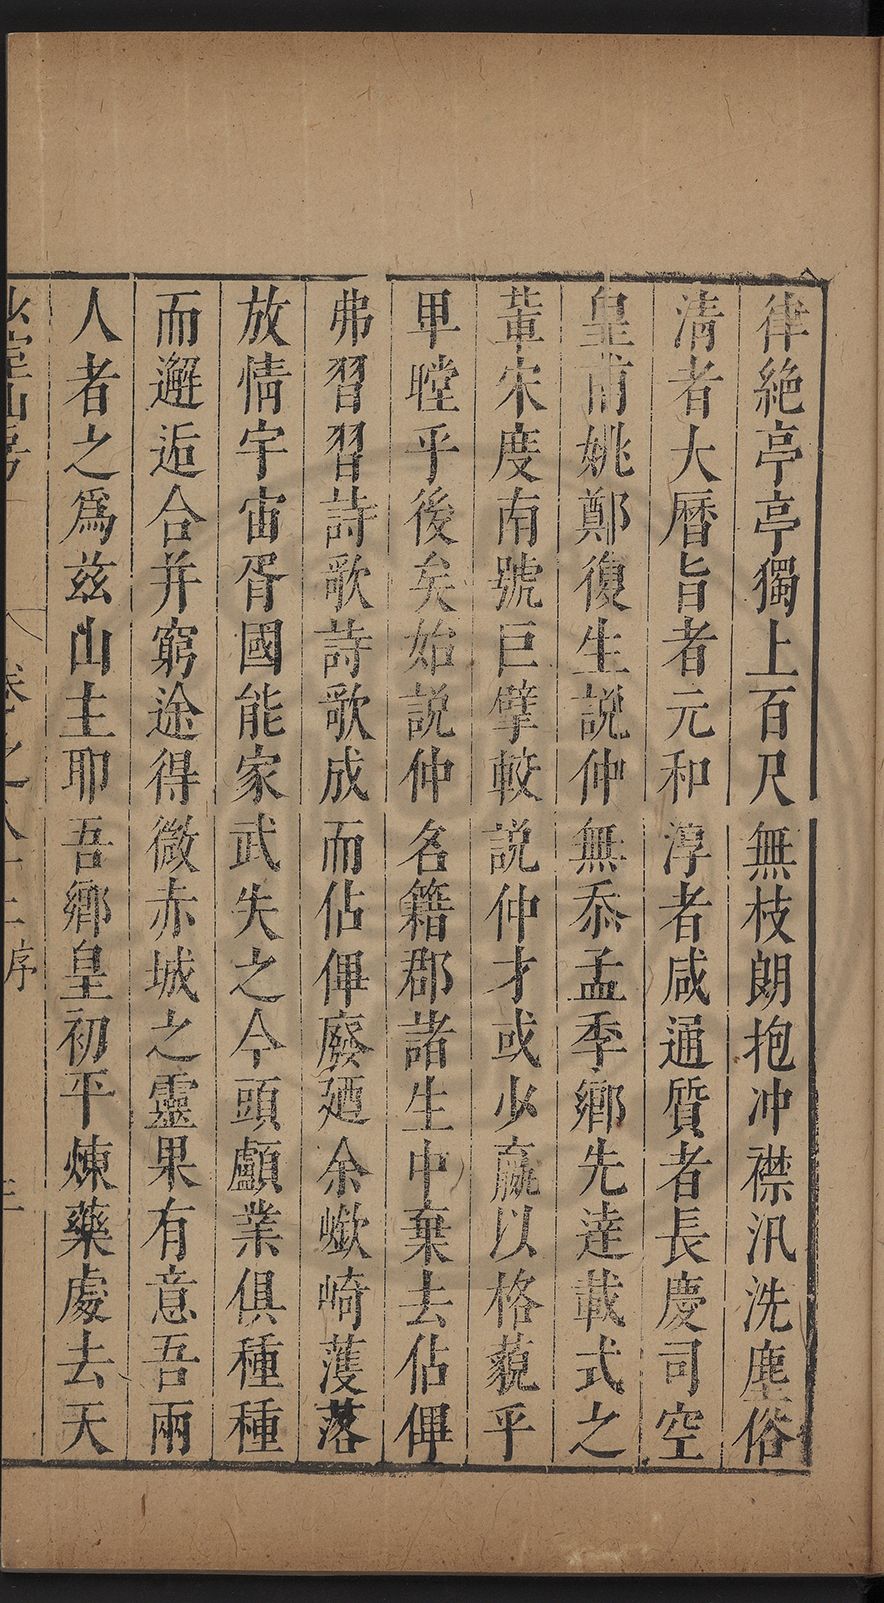 律絶亭亭獨上百尺無枝朗抱冲襟汎洗塵俗
清者大曆旨者元和淳者咸通質者長慶司空
皇甫姚鄭復生説仲無忝孟季鄉先達載式之
葷宋度南號巨擘較説仲才或少嬴以格藐乎
畢瞠乎後矣始説仲名籍郡諸生中棄去佔俾
弗習習詩歌詩歌成而佔俾廢廼余嶔崎蒦落
放情宇宙胥國能家武失之今頭顱業俱種種
而邂逅合并窮途得微赤城之靈果有意吾兩
人者之爲兹山主耶吾鄉皇初平煉藥處去天
少室山房 卷之八十二序 三